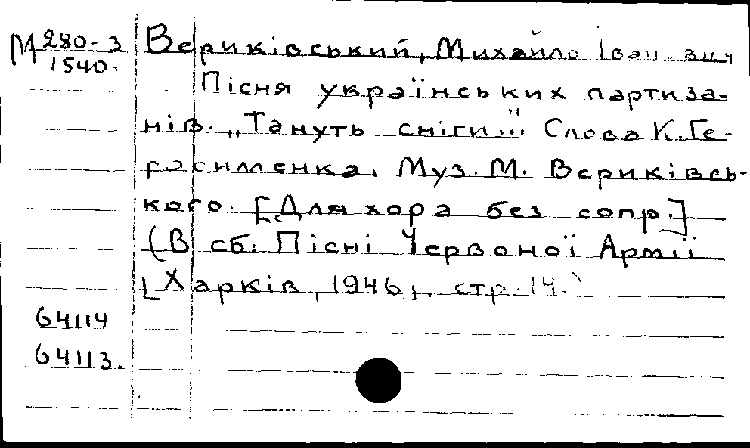 М 280-3
1540.
Вериківський, Михайло Іванович
Пісня українських партиза-
нів. „Тануть сніги..." Слова К. Ге-
расименка. Муз. М. Вериківсь-
кого. [Для хора без сопр.]
(В сб. Пісні Червоної Армії
[Харків, 1946], стр. 14.
64114
64113.